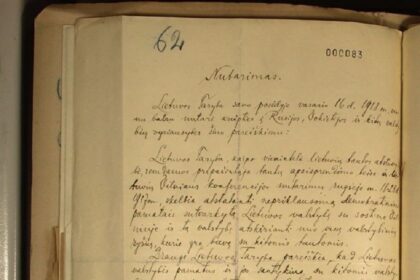 62
000083
Nutarimas.
Lietuvos Taryba savo posėdyje vasario 16 d. 1918 m. vie-
nu balsu nutarė kreiptis į Rusijos, Vokietijos ir kitų valsty-
bių vyriausybes šiuo pareiškimu:
Lietuvos Taryba, kaipo vienintelė lietuvių tautos atstovy-
bė, remdamos pripažintąja tautų apsisprendimo teise ir lie-
tuvių Vilniaus konferencijos nutarimu rugsėjo m. 18-23 d.
1917 m., skelbia atstatanti nepriklausomą demokratiniais
pamatais sutvarkytą Lietuvos valstybę su sostine Vil-
niuje ir tą valstybę atskirianti nuo visų valstybinių
ryšių, kurie yra buvę su kitomis tautomis.
Drauge Lietuvos Taryba pareiškia, kad Lietuvos
valstybės pamatus ir jos santykius su kitomis valsty-